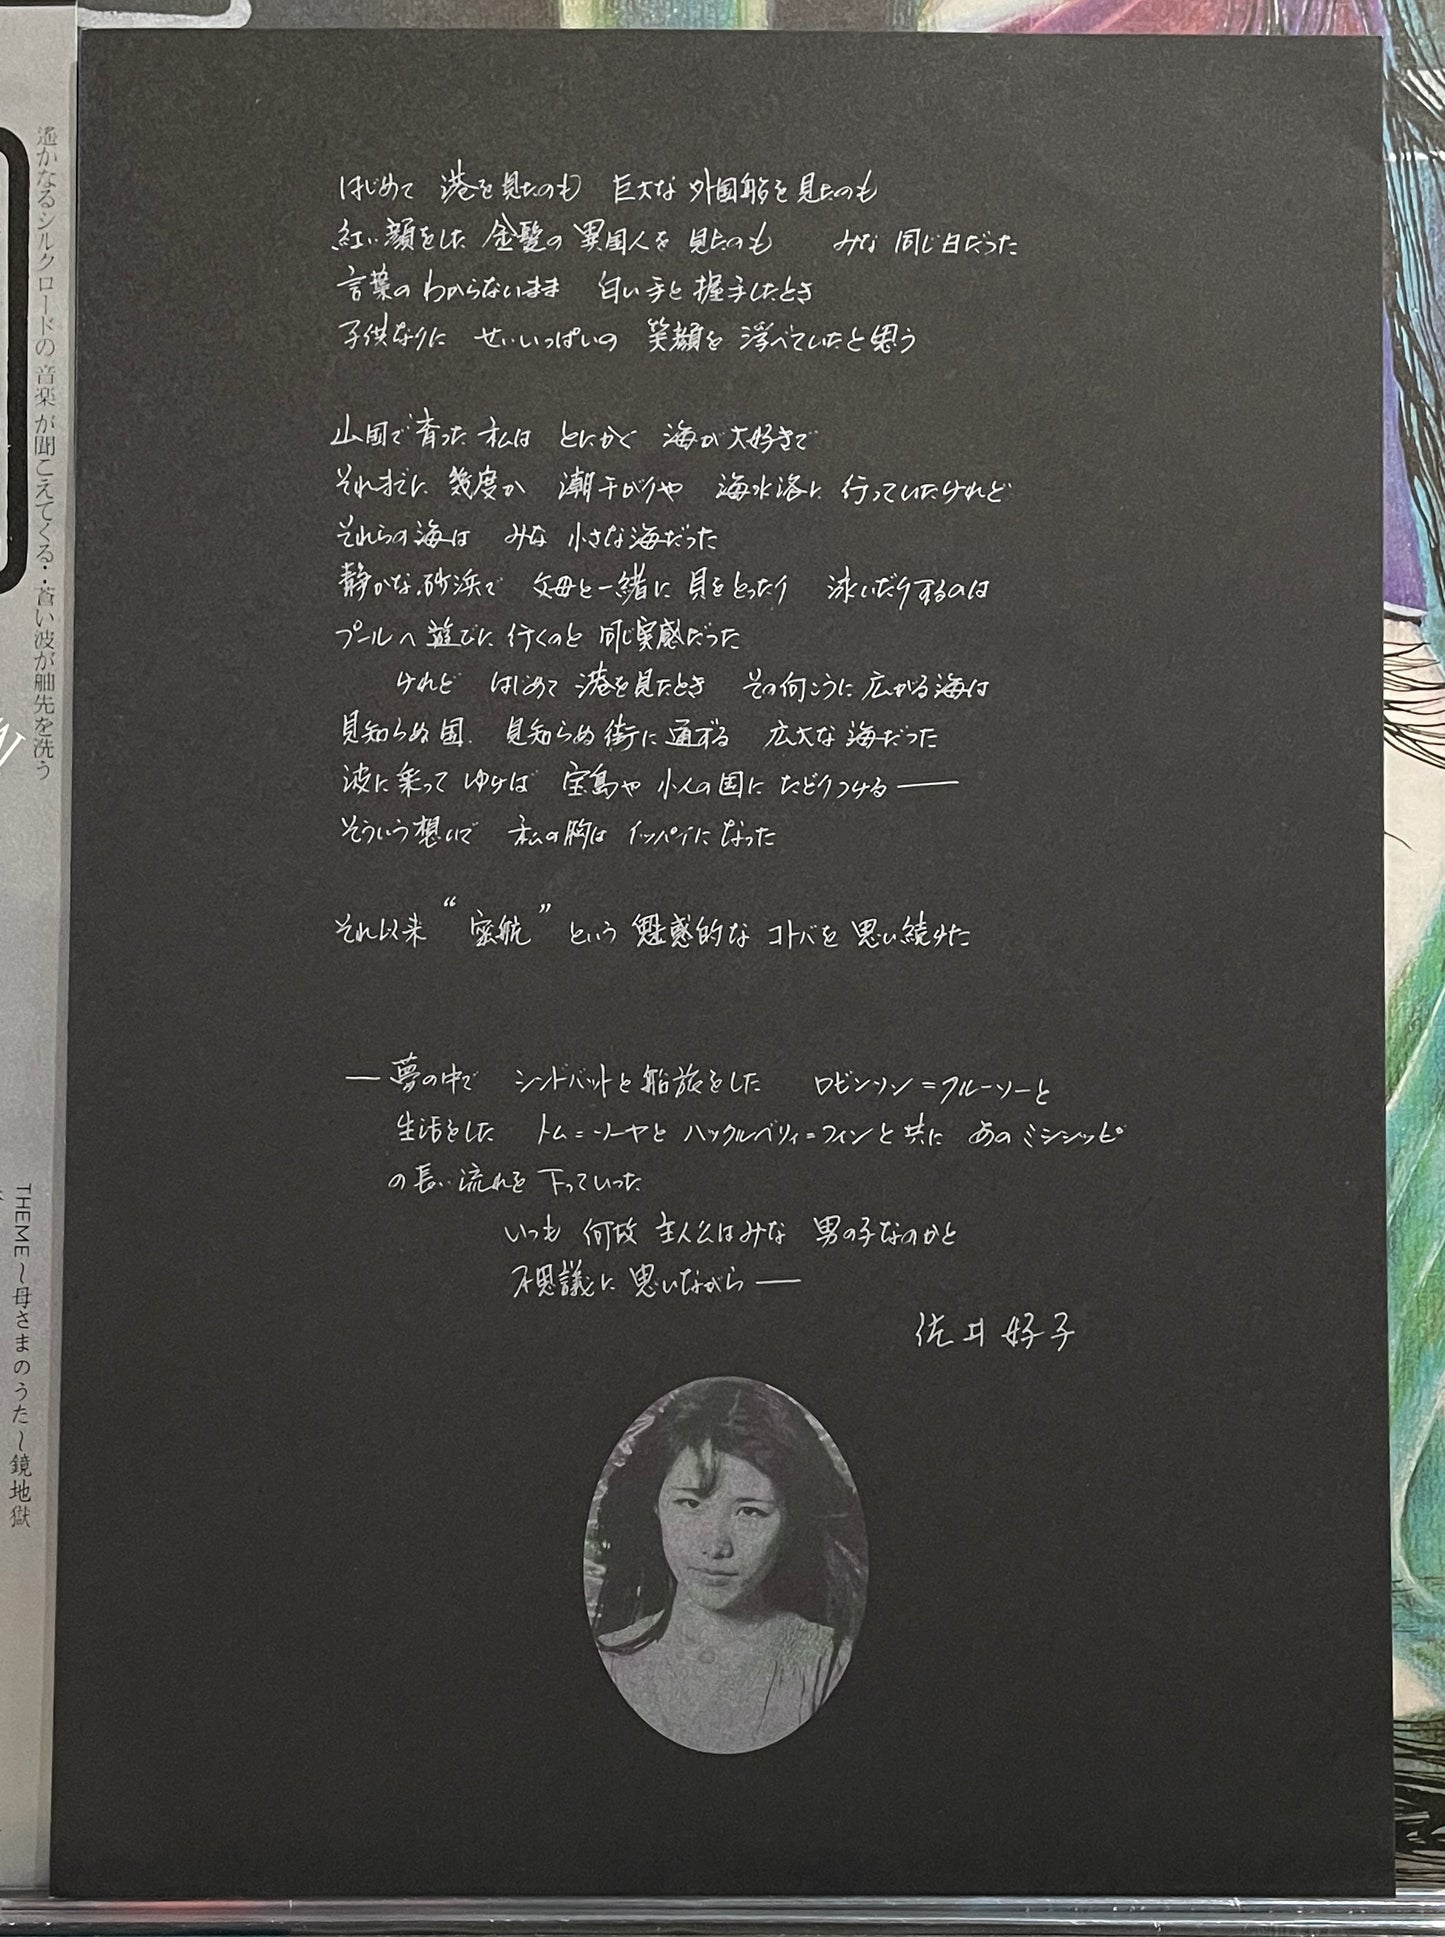 はじめて 港を見たのも 巨大な外国船を見たのも
紅い顔をした 金髪の異国人を 見たのも みな同じ日だった
言葉のわからないまま 白い手と握手したとき
子供なりに せいいっぱいの 笑顔を浮べていたと思う
山国で育った私は とにかく 海が大好きで
それまでに幾度か 潮干がりや 海水浴に行っていたけれど
それらの海は みな 小さな海だった
静かな砂浜で 父母と一緒に 貝をとったり 泳いだりするのは
プールへ遊びに行くのと同じ実感だった
けれど はじめて港を見たとき その向こうに広がる海は
見知らぬ国、見知らぬ街に通ずる 広大な海だった
波に乗ってゆけば 宝島や小人の国にたどりつける――
そういう想いで 私の胸はイッパイになった
それ以来“密航”という魅惑的なコトバを思い続けた
―夢の中で シンドバットと船旅をした ロビンソン=クルーソーと
生活をした トム=ソーヤとハックルベリィ=フィンと共に あのミシシッピ
の長い流れを下っていった
いつも 何故 主人公はみな 男の子なのかと
不思議に思いながら――
佐井好子
遙かなるシルクロードの音楽が聞こえてくる・・蒼い波が舳先を洗う
THEME〜母さまのうた〜鏡地獄